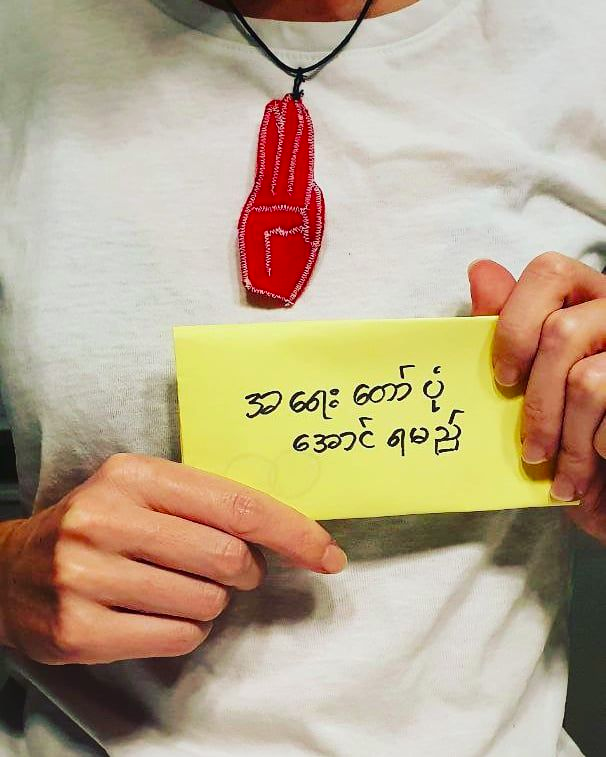 အရေး တော် ပုံ
အောင် ရမည်